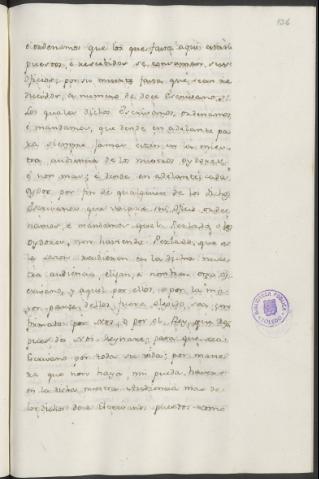 136
é ordenamos que los que fasta aqui estan
puestos, é rescebidos se consuman, sus
oficios, por su muerte fasta que sean re
ducidos, a numero de doce Escrivanos.
Los quales dichos Escrivanos, ordenamos
é mandamos, que dende en adelante pa
ra siempre jamas esten en la nues
tra audiencia de los nuestros oydores
é non mas; é dende en adelante cada
que por fin de qualquier de los dichos
Escrivanos que vacare su oficio orde
namos, é mandamos que el Perlado, é los
oydores, non haviendo Perlado, que a
la sazon residieren en la dicha nues
tra audiencia, elijan, é nombren otro Es
crivano, é aquel por ellos, o por la ma
yor parte dellos fuere elegido, sea con
firmado por Nos, o por el Rey, que des
pues de Nos reynare, para que sea
Escrivano por toda su vida; por mane
ra que non haya, ni pueda haver
en la dicha nuestra Audiencia mas de
los dichos doce Escrivanos puestos como
BIBLIOTECA PUBLICA
TOLEDO